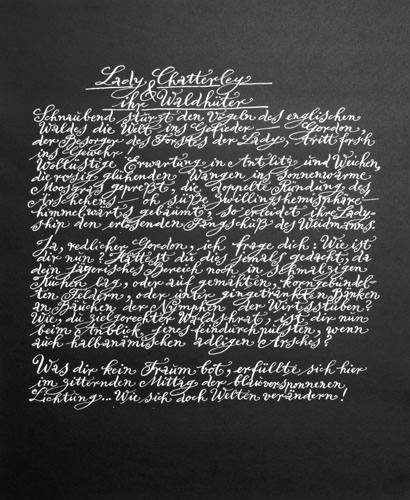 Lady Chatterley
&
ihr Waldhüter
Schnaubend stürzt den Vögeln des englischen
Waldes die Welt ins Gefieder — Gordon,
der Besorger des Forstes der Lady, tritt forsch
ins Gewehr.
Wollüstige Erwartung in Antlitz und Weichen,
die rosig glühenden Wangen ins sonnenwarme
Moosgras gepreßt, die doppelte Rundung des
Ärschchens — oh süße Zwillingshemisphäre —
himmelwärts gebäumt, so erleidet ihre Lady-
ship den erlösenden Fangschuß des Weidmanns.
Ja, redlicher Gordon, ich frage dich: Wie ist
dir nun? Hättest du dies jemals gedacht, da
dein jägerisches Bereich noch in schmalzigen
Küchen lag, oder auf gemähten, korngebündel-
ten Feldern, oder unter gingetränkten Bänken
an Bäuchen der Nymphen der Wirtsstuben?
Wie, du zielgerechter Waldschrat, ist dir nun
beim Anblick jenes feindurchpulsten, wenn
auch halbanämischen adligen Arsches?
Was dir kein Traum bot, erfüllte sich hier
im zitternden Mittag der blauversponnenen
Lichtung... Wie sich doch Welten verändern!